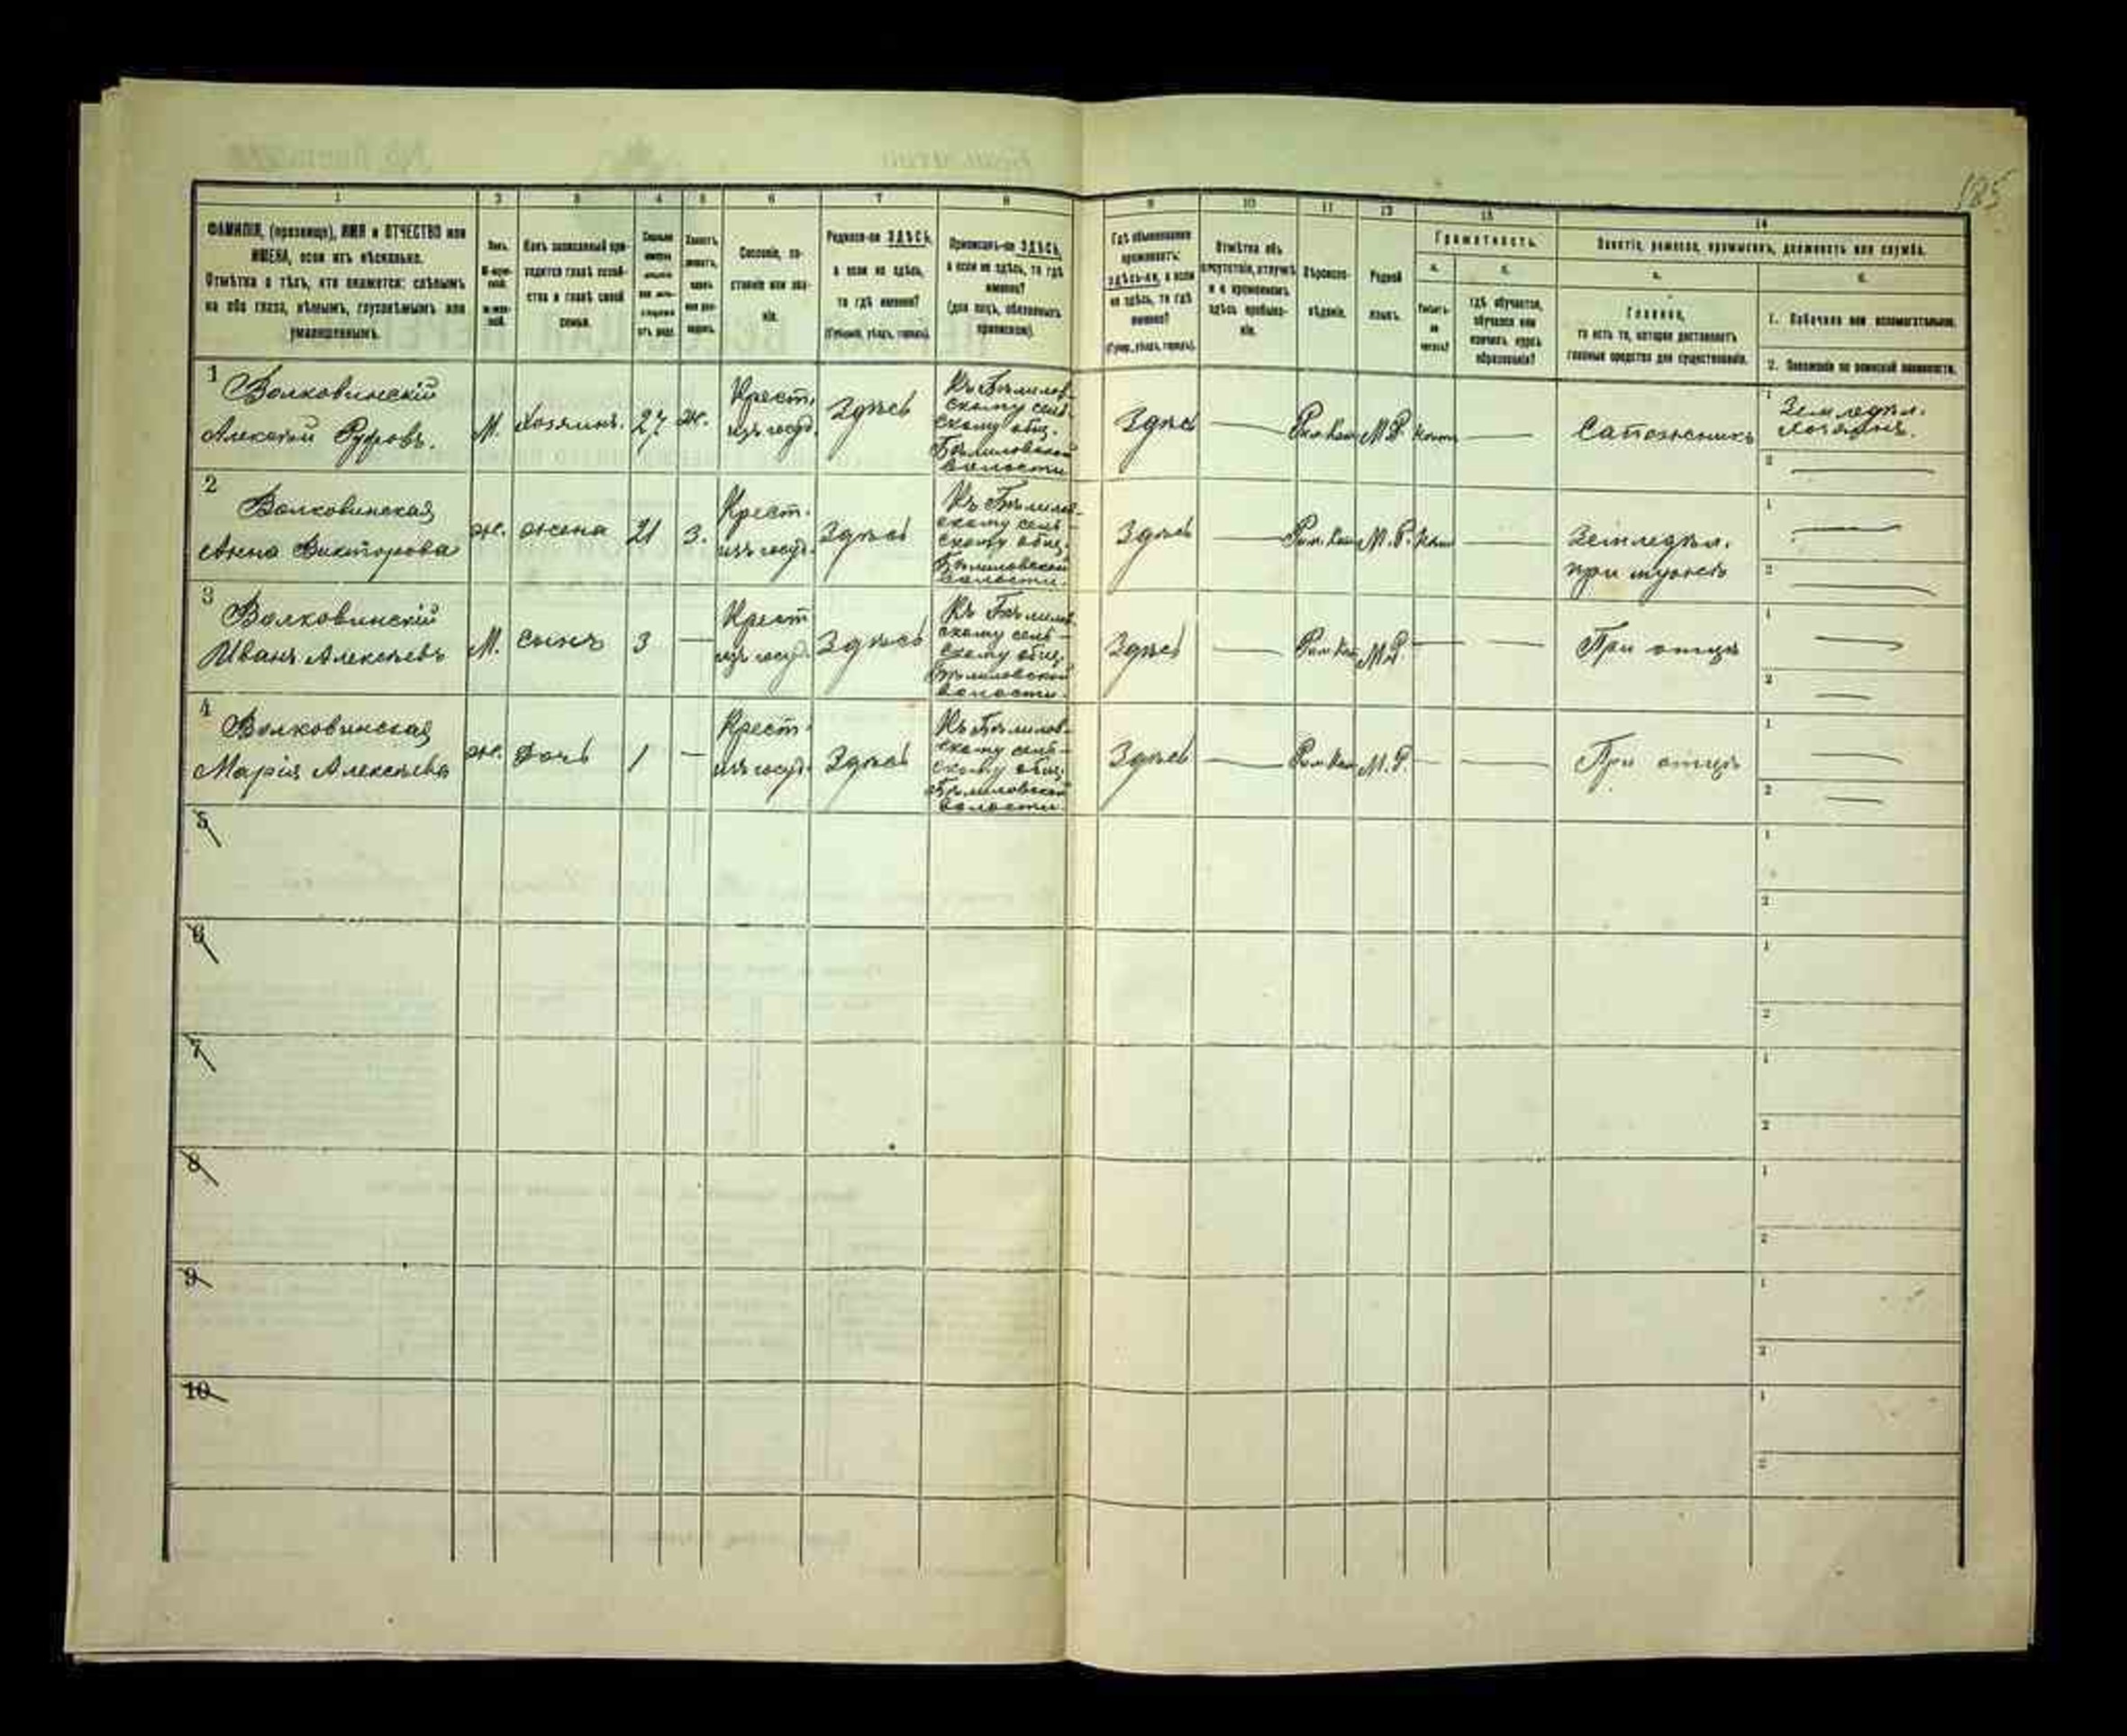 185
1 2 3 4 5 6 7 8 9 10 11 12 13 14
ФАМИЛІЯ, (прозвище), ИМЯ и ОТЧЕСТВО или
ИМЕНА, если ихъ нѣсколько.
Отмѣтка о тѣхъ, кто окажется: слѣпымъ
на оба глаза, нѣмымъ, глухонѣмымъ или
умалишеннымъ.
Полъ.
Какъ записанный при-
ходится главѣ хозяй-
ства и главѣ своей
семьи.
Сословіе, со-
стояніе или зва-
ніе.
Родился-ли ЗДѢСЬ,
а если не здѣсь,
то гдѣ именно?
(Губернія, уѣздъ, городъ).
Приписанъ-ли ЗДѢСЬ,
а если не здѣсь, то гдѣ
именно?
(для лицъ, обязанныхъ
припискою).
Гдѣ обыкновенно
проживаетъ:
здѣсь-ли, а если
не здѣсь, то гдѣ
именно?
(Губер., уѣздъ, городъ).
Отмѣтка объ
отсутствіи, отлучкѣ
и о временномъ
здѣсь пребыва-
ніи.
Вѣроиспо-
вѣданіе.
Родной
языкъ.
Грамотность.
а. б.
Умѣетъ-
ли
читать?
гдѣ обучается,
обучался или
кончилъ курсъ
образованія?
Занятіе, ремесло, промыселъ, должность или служба.
а. б.
Главное,
то есть то, которое доставляетъ
главныя средства для существованія.
1. Побочное или вспомогательное.
2. Положеніе по воинской повинности.
1 Волковинскій
Алексѣй Руфовъ.
М. Хозяинъ. 27 ж.
Крест.
изъ госуд.
Здѣсь
Къ Бѣлилов-
скому сель-
скому общ.
Бѣлиловской
волости
Здѣсь
Рим Кат М.Р.
Сапожникъ
1 Земледѣл.
2
2 Волковинская
Анна Викторова
ж. жена 21 з.
Крест.
изъ госуд.
Здѣсь
Къ Бѣлилов-
скому сель-
скому общ.
Бѣлиловской
волости.
Здѣсь
Рим. Кат М.Р.
Земледѣл.
при мужѣ
1
2
3 Волковинскій
Иванъ Алексѣевъ
М. сынъ 3
Крест
изъ госуд.
Здѣсь
Къ Бѣлилов-
скому сель-
скому общ.
Бѣлиловской
волости.
Здѣсь
Рим Кат М.Р.
При отцѣ
1
2
4 Волковинская
Марія Алексѣева
ж. дочь 1
Крест.
изъ госуд.
Здѣсь
Къ Бѣлилов-
скому сель-
скому общ.
Бѣлиловской
волости.
Здѣсь
Рим Кат М.Р.
При отцѣ
1
2
5
1
2
6
1
2
7
1
2
8
1
2
9
1
2
10
1
2